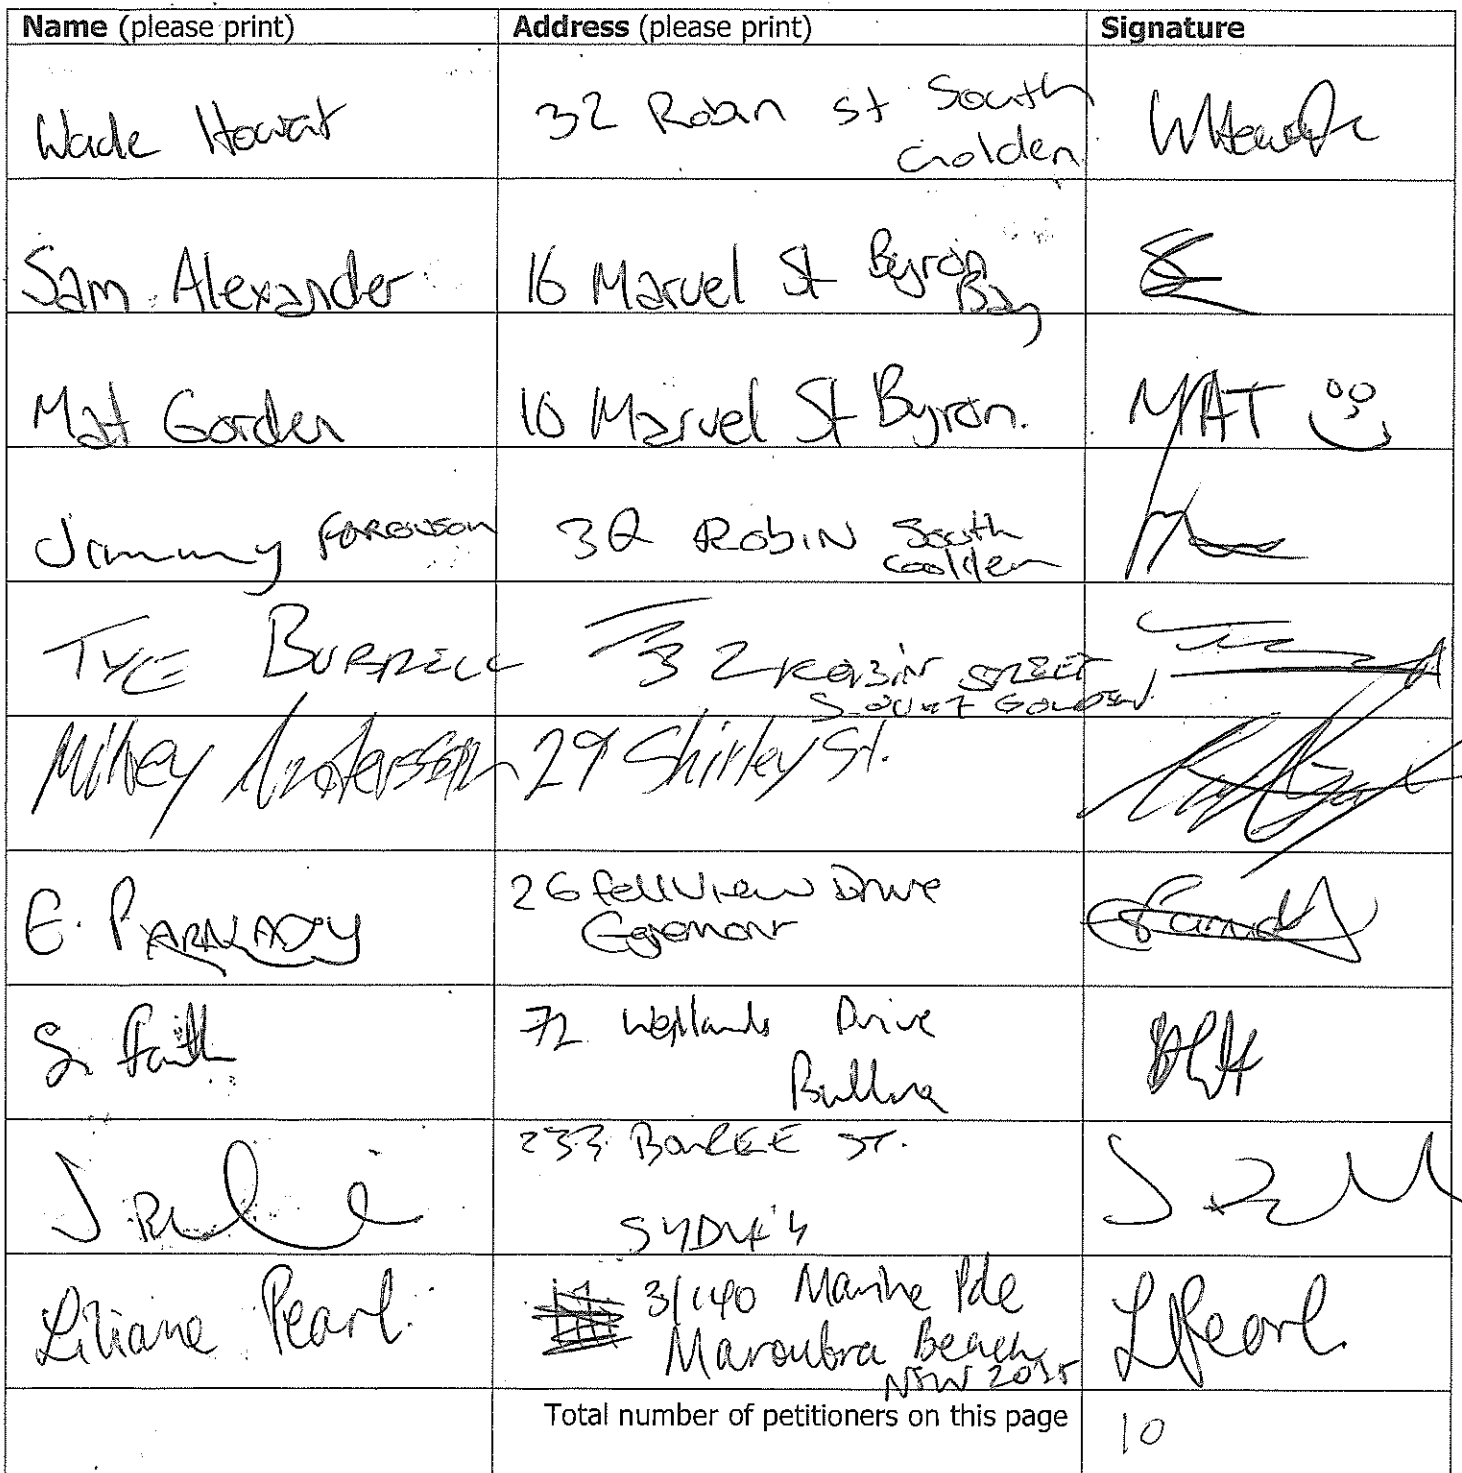 Name (please print) Address (please print) Signature
Wade Howat 32 Robin St South
Golden WHowat
Sam Alexander 16 Marvel St Byron
Bay
Mat Gorden 16 Marvel St Byron. MAT
Jimmy Ferguson 32 Robin South
Golden
TYE BURRELL 32 ROBIN STREET
SOUTH GOLDEN
Mikey Andersson 29 Shirley St.
E. PARNABY 26 Fell View Drive
Egremont
S. Faith 72 Westlands Drive
Ballina
233 ST.
SYDNEY
Liliane Pearl. 3/140 Marine Pde
Maroubra Beach
NSW 2035 LPearl.
Total number of petitioners on this page 10